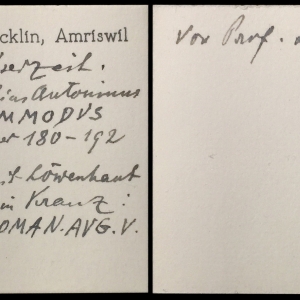 cklin, Amriswil
serzeit.
ius Antoninus
MMODVS
er 180-192
it Löwenhaut
in Kranz:
OMAN. AVG. V.
Von Prof.